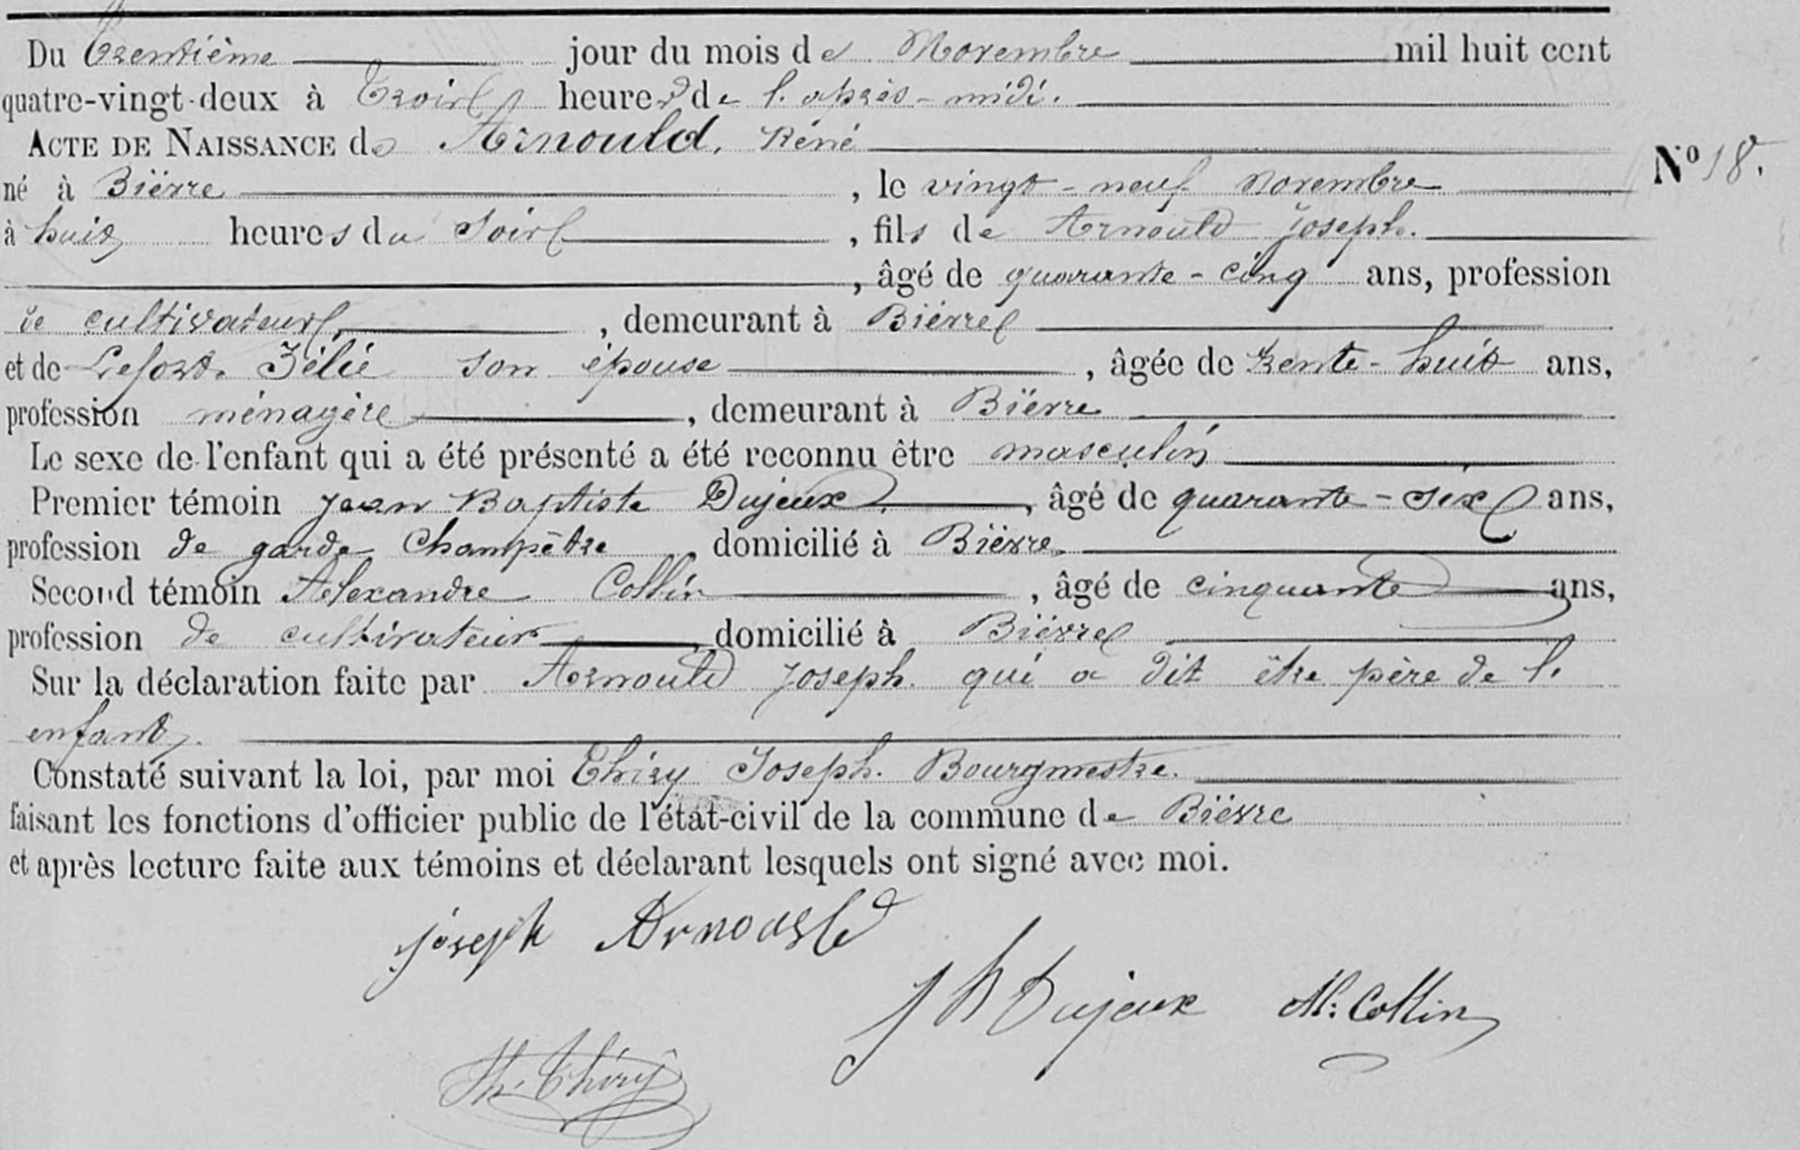 Du trentième jour du mois de Novembre mil huit cent
quatre-vingt-deux à Trois heures de l'après-midi.
ACTE DE NAISSANCE de Arnould, Réné
N° 18.
né à Bièvre, le vingt-neuf Novembre
à huit heures du Soir, fils de Arnould Joseph.
, âgé de quarante-cinq ans, profession
de cultivateur, demeurant à Bièvre
et de Lefort. Zélie son épouse, âgée de trente-huit ans,
profession ménagère, demeurant à Bièvre
Le sexe de l'enfant qui a été présenté a été reconnu être masculin
Premier témoin Jean Baptiste Dujeux, âgé de quarante-six ans,
profession de garde Champêtre, domicilié à Bièvre.
Second témoin Alexandre Collin, âgé de cinquante ans,
profession de cultivateur, domicilié à Bièvre
Sur la déclaration faite par Arnould Joseph. qui a dit être père de l'
enfant.
Constaté suivant la loi, par moi Thiry Joseph. Bourgmestre.
faisant les fonctions d'officier public de l'état-civil de la commune de Bièvre
et après lecture faite aux témoins et déclarant lesquels ont signé avec moi.
joseph Arnould
J B Dujeux Al: Collin
Jh. Thiry